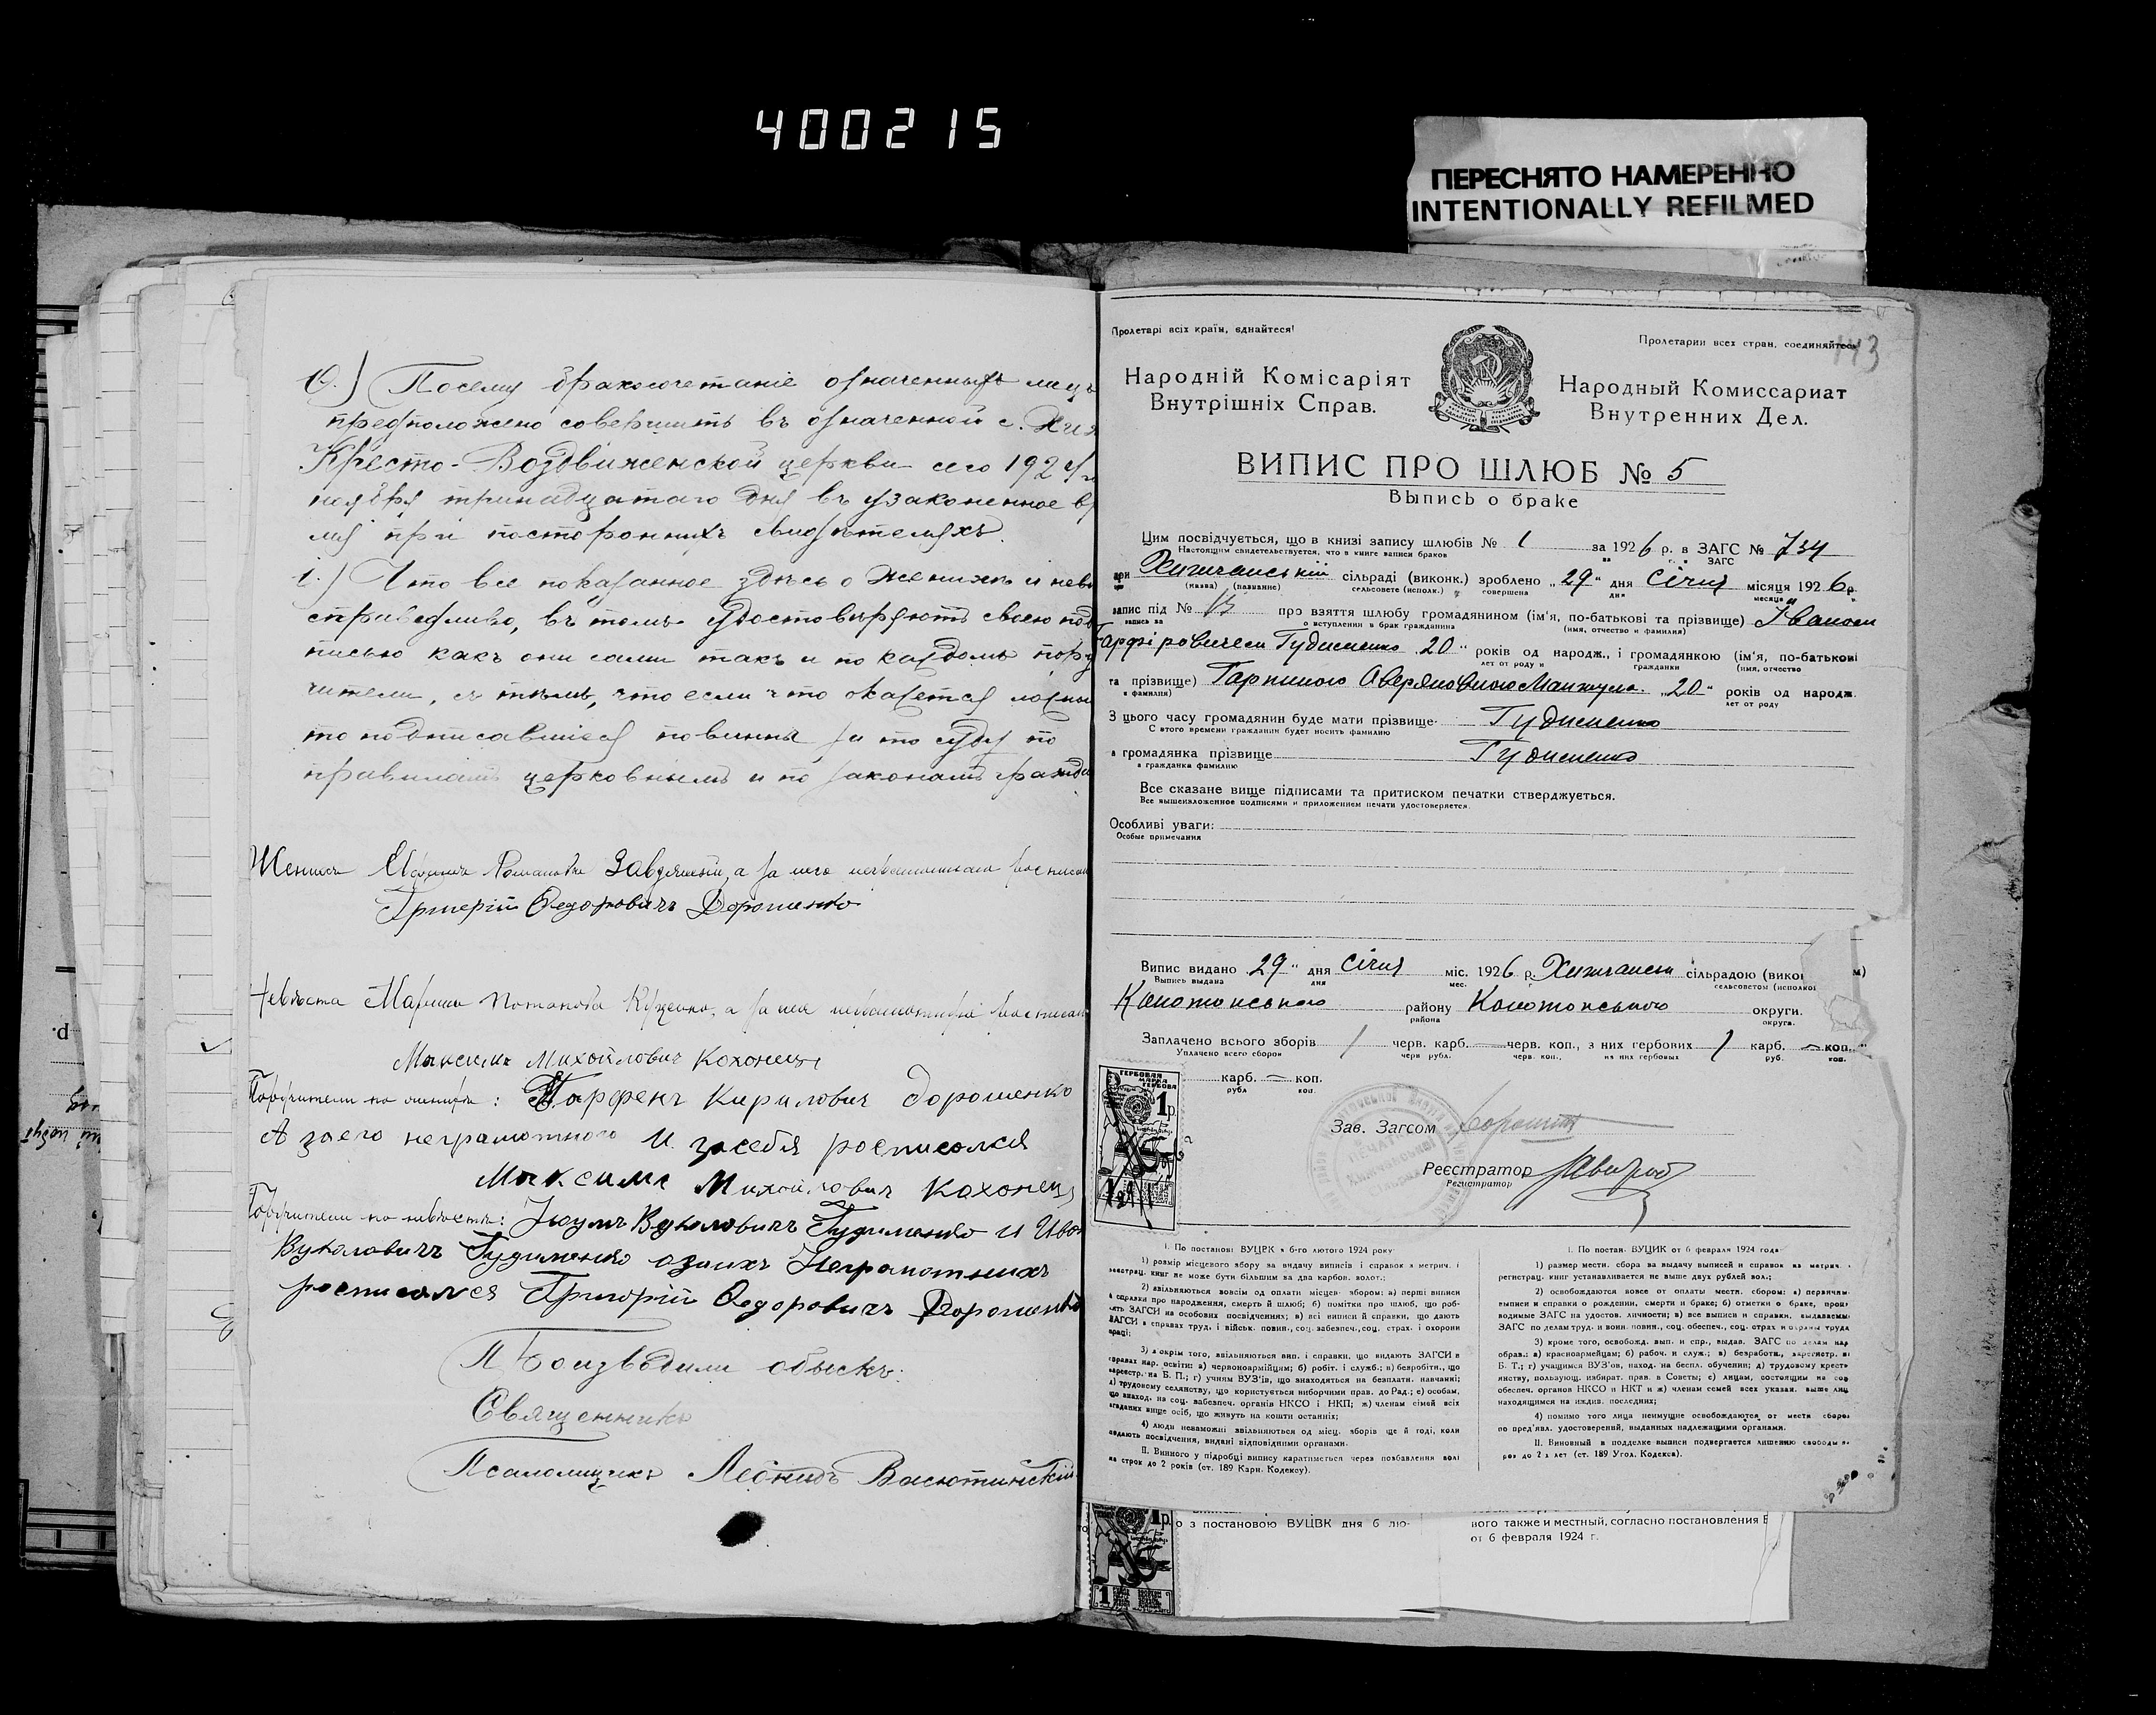 400215
ПЕРЕСНЯТО НАМЕРЕННО
INTENTIONALLY REFILMED
Посему бракосочетаніе означенныхъ лицъ
предположено совершить въ означенной с.
Кресто-Воздвиженской церкви сего 1924 г
ноября тринадцатаго дня въ узаконенное вр
мя при постороннихъ свидѣтеляхъ.
Что все показанное здѣсь о женихѣ и невѣ
справедливо, въ томъ удостовѣряютъ своею под
писью какъ они сами такъ и по каждомъ пору
чители, съ тѣмъ, что если что окажется ложны
то подписавшіеся повинны за то суду по
правиламъ церковнымъ и по законамъ гражда
Женихъ Романовъ а за него неграмотнаго
Григорій Федоровичъ Дорошенко
Невѣста Потапова а за нея
Максимъ Михойловичъ Кохонецъ
Поручители по женихѣ: Парфенъ Кириловичъ Дорошенко
А заего неграмотного и засебя росписолся
Максимъ Михойловичъ Кохонецъ
Поручители по невѣстѣ: Вуколовичъ Гудименко и Иван
Вуколовичъ Гудименко азаихъ Неграмотныихъ
росписолся Григорій Федоровичъ Дорошенко
Производили обыскъ:
Священникъ
Псаломщикъ Леонидъ Васютинскій
143
Пролетарі всіх країн, єднайтеся!
Пролетарии всех стран, соединяйтесь
Народній Комісаріят
Внутрішніх Справ.
Народный Комиссариат
Внутренних Дел.
ВИПИС ПРО ШЛЮБ № 5
Выпись о браке
Цим посвідчується, що в книзі запису шлюбів № 1 за 1926 р. в ЗАГС № 734
Настоящим свидетельствуется, что в книге записи браков за г. в ЗАГС
при Хижчанській сільраді (виконк.) зроблено „29" дня січня місяця 1926 р.
(назва) (название) сельсовете (исполк.) совершена дня месяца
запис під № 13 про взяття шлюбу громадянином (ім'я, по-батькові та прізвище) Іваном
запись за о вступлении в брак гражданина (имя, отчество и фамилия)
Гудименко „20" років од народж., і громадянкою (ім'я, по-батькові
лет от роду и гражданки (имя, отчество
та прізвище) Гарпиною Аверяновною Манжула „20" років од народж.
и фамилия) лет от роду
З цього часу громадянин буде мати прізвище Гудименко
С этого времени гражданин будет носить фамилию
а громадянка прізвище Гудименко
а гражданка фамилию
Все сказане вище підписами та притиском печатки стверджується.
Все вышеизложенное подписями и приложением печати удостоверяется.
Особливі уваги:
Особые примечания
Випис видано „29" дня січня міс. 1926 р. Хижчанською сільрадою (викон
Выпись выдана дня мес. г. сельсоветом (исполко
Конотопського району Конотопського округи.
района округа.
Заплачено всього зборів 1 черв. карб. черв. коп., з них гербових 1 карб. коп.
Уплачено всего сборов черв. рубл. черв. коп., из них гербовых руб. коп.
карб. коп.
рубл коп.
ГЕРБОВАЯ МАРКА
1 р.
Зав. Загсом
Реєстратор
Регистратор
І. По постанові ВУЦРК з 6-го лютого 1924 року
1) розмір місцевого збору за видачу виписів і справок з метрич. і
реєстрац. книг не може бути більшим за два карбов. волот.;
2) звільняються вовсім од оплати місцев. збором: а) перші виписи
й справки про народження, смерть й шлюб; б) помітки про шлюб, що роб-
лять ЗАГСИ на особових посвідченнях; в) всі виписи й справки, що дають
ЗАГСИ в справах труд. і військ. повин., соц. забезпеч., соц. страх. і охорони
праці;
3) а окрім того, звільняються вип. і справки, що видають ЗАГСИ в
справах нар. освіти: а) червоноармійцям; б) робіт. і служб.; в) безробітн., що
зареєстр. на Б. П.; г) учням ВУЗ'ів, що знаходяться на безплатн. навчанні;
д) трудовому селянству, що користується виборчими прав. до Рад.; е) особам,
що знаход. на соц. забезпеч. органів НКСО і НКП; ж) членам сімей всіх
згаданих вище осіб, що живуть на кошти останніх;
4) люди незаможні звільняються од місц. зборів ще й годі, коли
подають посвідчення, видані відповідними органами.
ІІ. Винного у підробці випису каратиметься через позбавлення волі
на строк до 2 років (ст. 189 Карн. Кодексу).
I. По постан. ВУЦИК от 6 февраля 1924 года
1) размер местн. сбора за выдачу выписей и справок из метрич.
регистрац. книг устанавливается не выше двух рублей вол.;
2) освобождаются вовсе от оплаты местн. сбором: а) первичн.
выписи и справки о рождении, смерти и браке; б) отметки о браке, произ
водимые ЗАГС на удостов. личности; в) все выписи и справки, выдаваемы
ЗАГС по делам труд. и воин. повин., соц. обеспеч., соц. страх и охраны труда
3) кроме того, освобожд. вып. и спр., выдав. ЗАГС по делам нар
образ.: а) красноармейцам; б) рабоч. и служ.; в) безработн., зарегистр. на
Б. Т.; г) учащимся ВУЗ'ов, наход. на беспл. обучении; д) трудовому кресть
янству, пользующ. избират. прав. в Советы; е) лицам, состоящим на соц
обеспеч. органов НКСО и НКТ и ж) членам семей всех указан. выше лиц
находящимся на иждив. последних;
4) помимо того лица неимущие освобождаются от местн сборов
по пред'явл. удостоверений, выданных надлежащими органами.
II. Виновный в подделке выписи подвергается лишению свободы
до 2 х лет (ст. 189 Угол. Кодекса).
1 р.
о з постановою ВУЦВК дня 6 лю-
ного также и местный, согласно постановления В
от 6 февраля 1924 г.
1